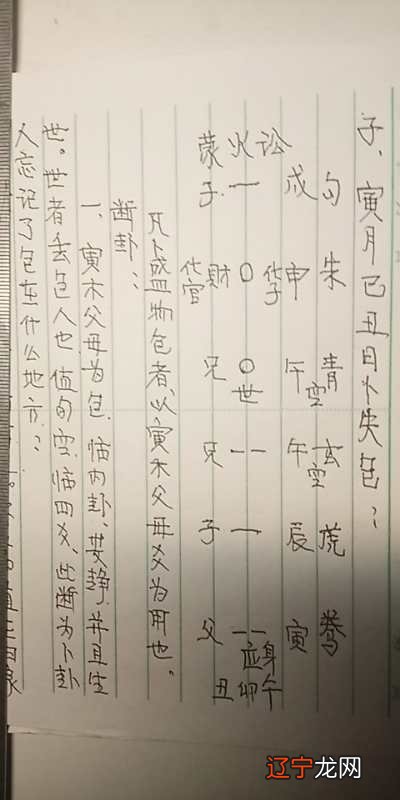 子、寅月己丑日卜失包：
蒙火讼
子 一 戌 勾
化官 財 O 化子 申 朱
兄 O 世 午空 青
兄 -- 午空 玄
子 一 辰 虎
父 -- 应身 寅
丑 卯 午
凡卜盛物包者、以寅木父母爻为用也。
断卦：
一、寅木父母为包、临内卦、安静、并且生
世。世者丢包人也、值旬空、临四爻、此断为卜卦
人忘记了包在什么地方：
辽宁龙网